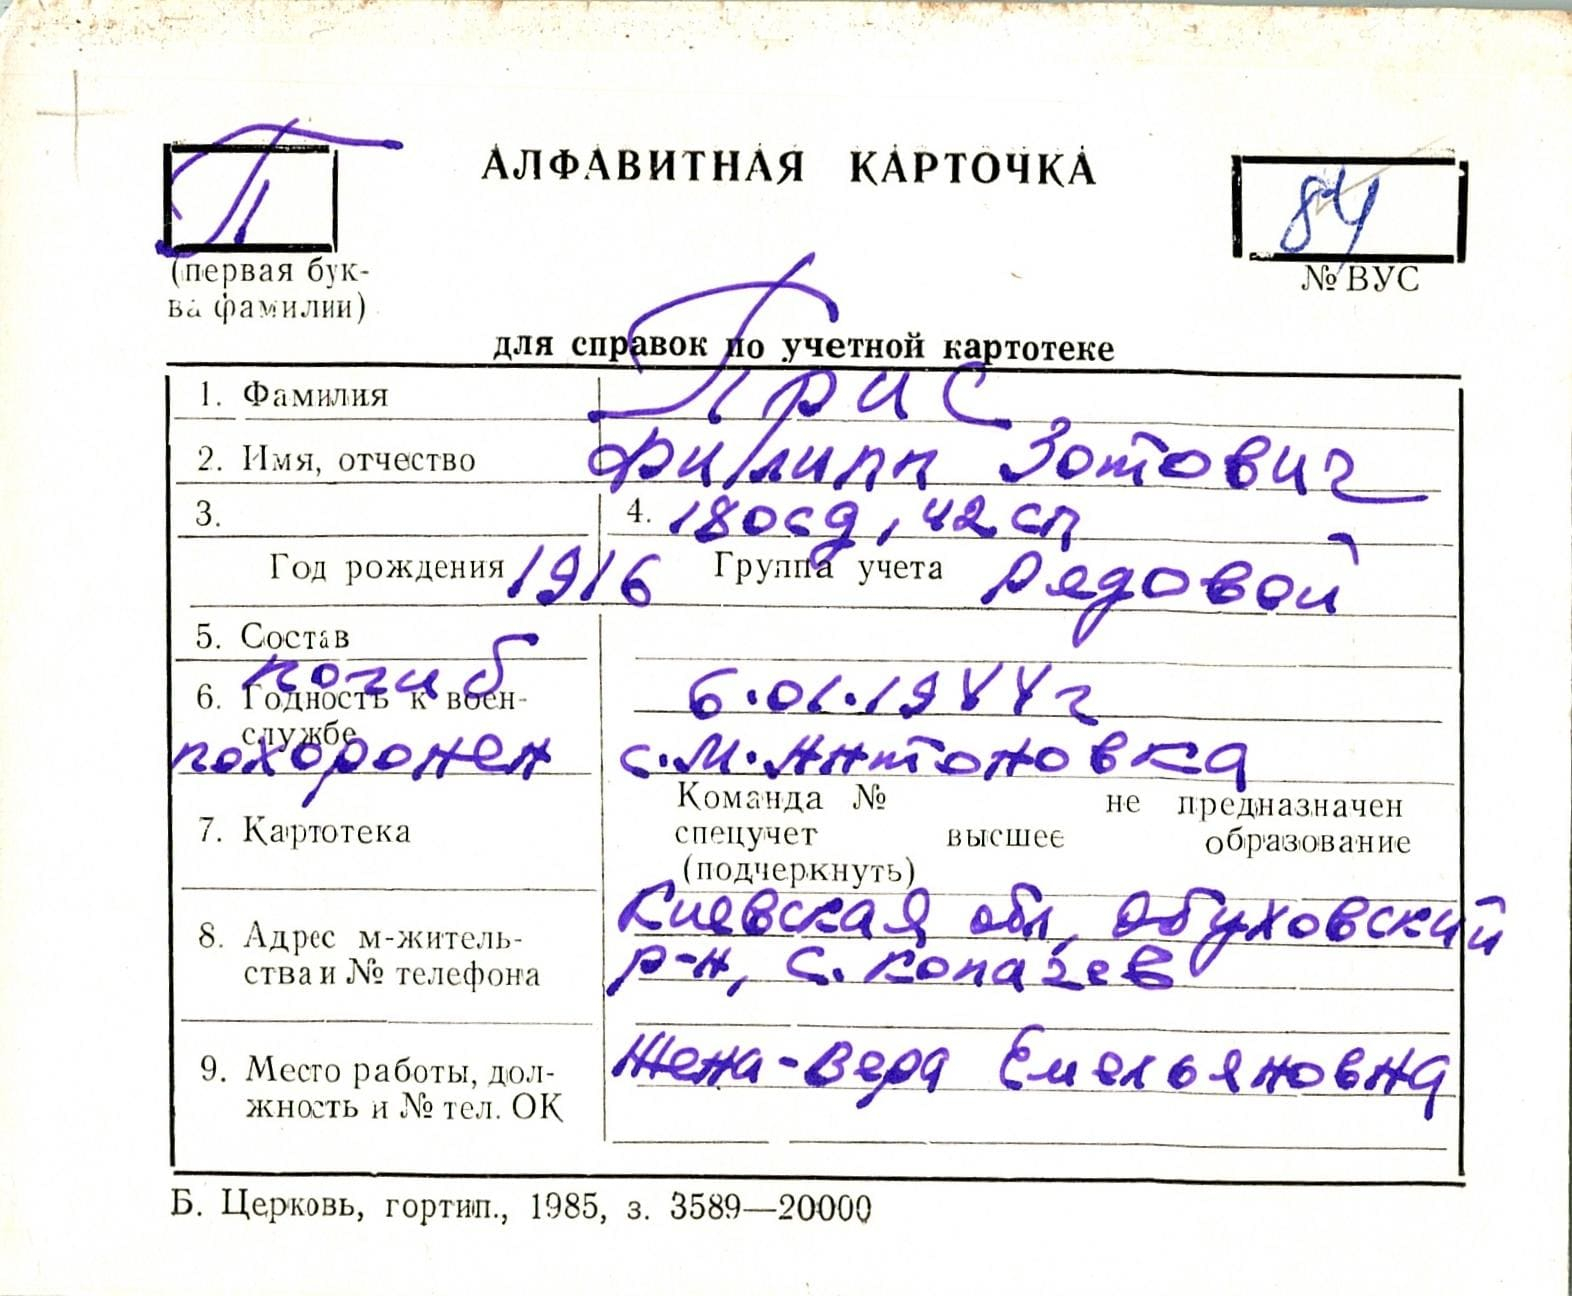 П
АЛФАВИТНАЯ КАРТОЧКА
84
(первая бук-
ва фамилии)
№ ВУС
для справок по учетной картотеке
1. Фамилия Прис
2. Имя, отчество Филипп Зотович
3. 4. 180 сд, 42 сп
Год рождения 1916 Группа учета рядовой
5. Состав
погиб 6.01.1944 г
6. Годность к воен-
службе
похоронен с. М. Антоновка
Команда № не предназначен
7. Картотека спецучет высшее образование
(подчеркнуть)
Киевская обл, Обуховский
8. Адрес м-житель-
ства и № телефона р-н, с. Копачев
9. Место работы, дол- Жена - Вера Емельяновна
жность и № тел. ОК
Б. Церковь, гортип., 1985, з. 3589—20000